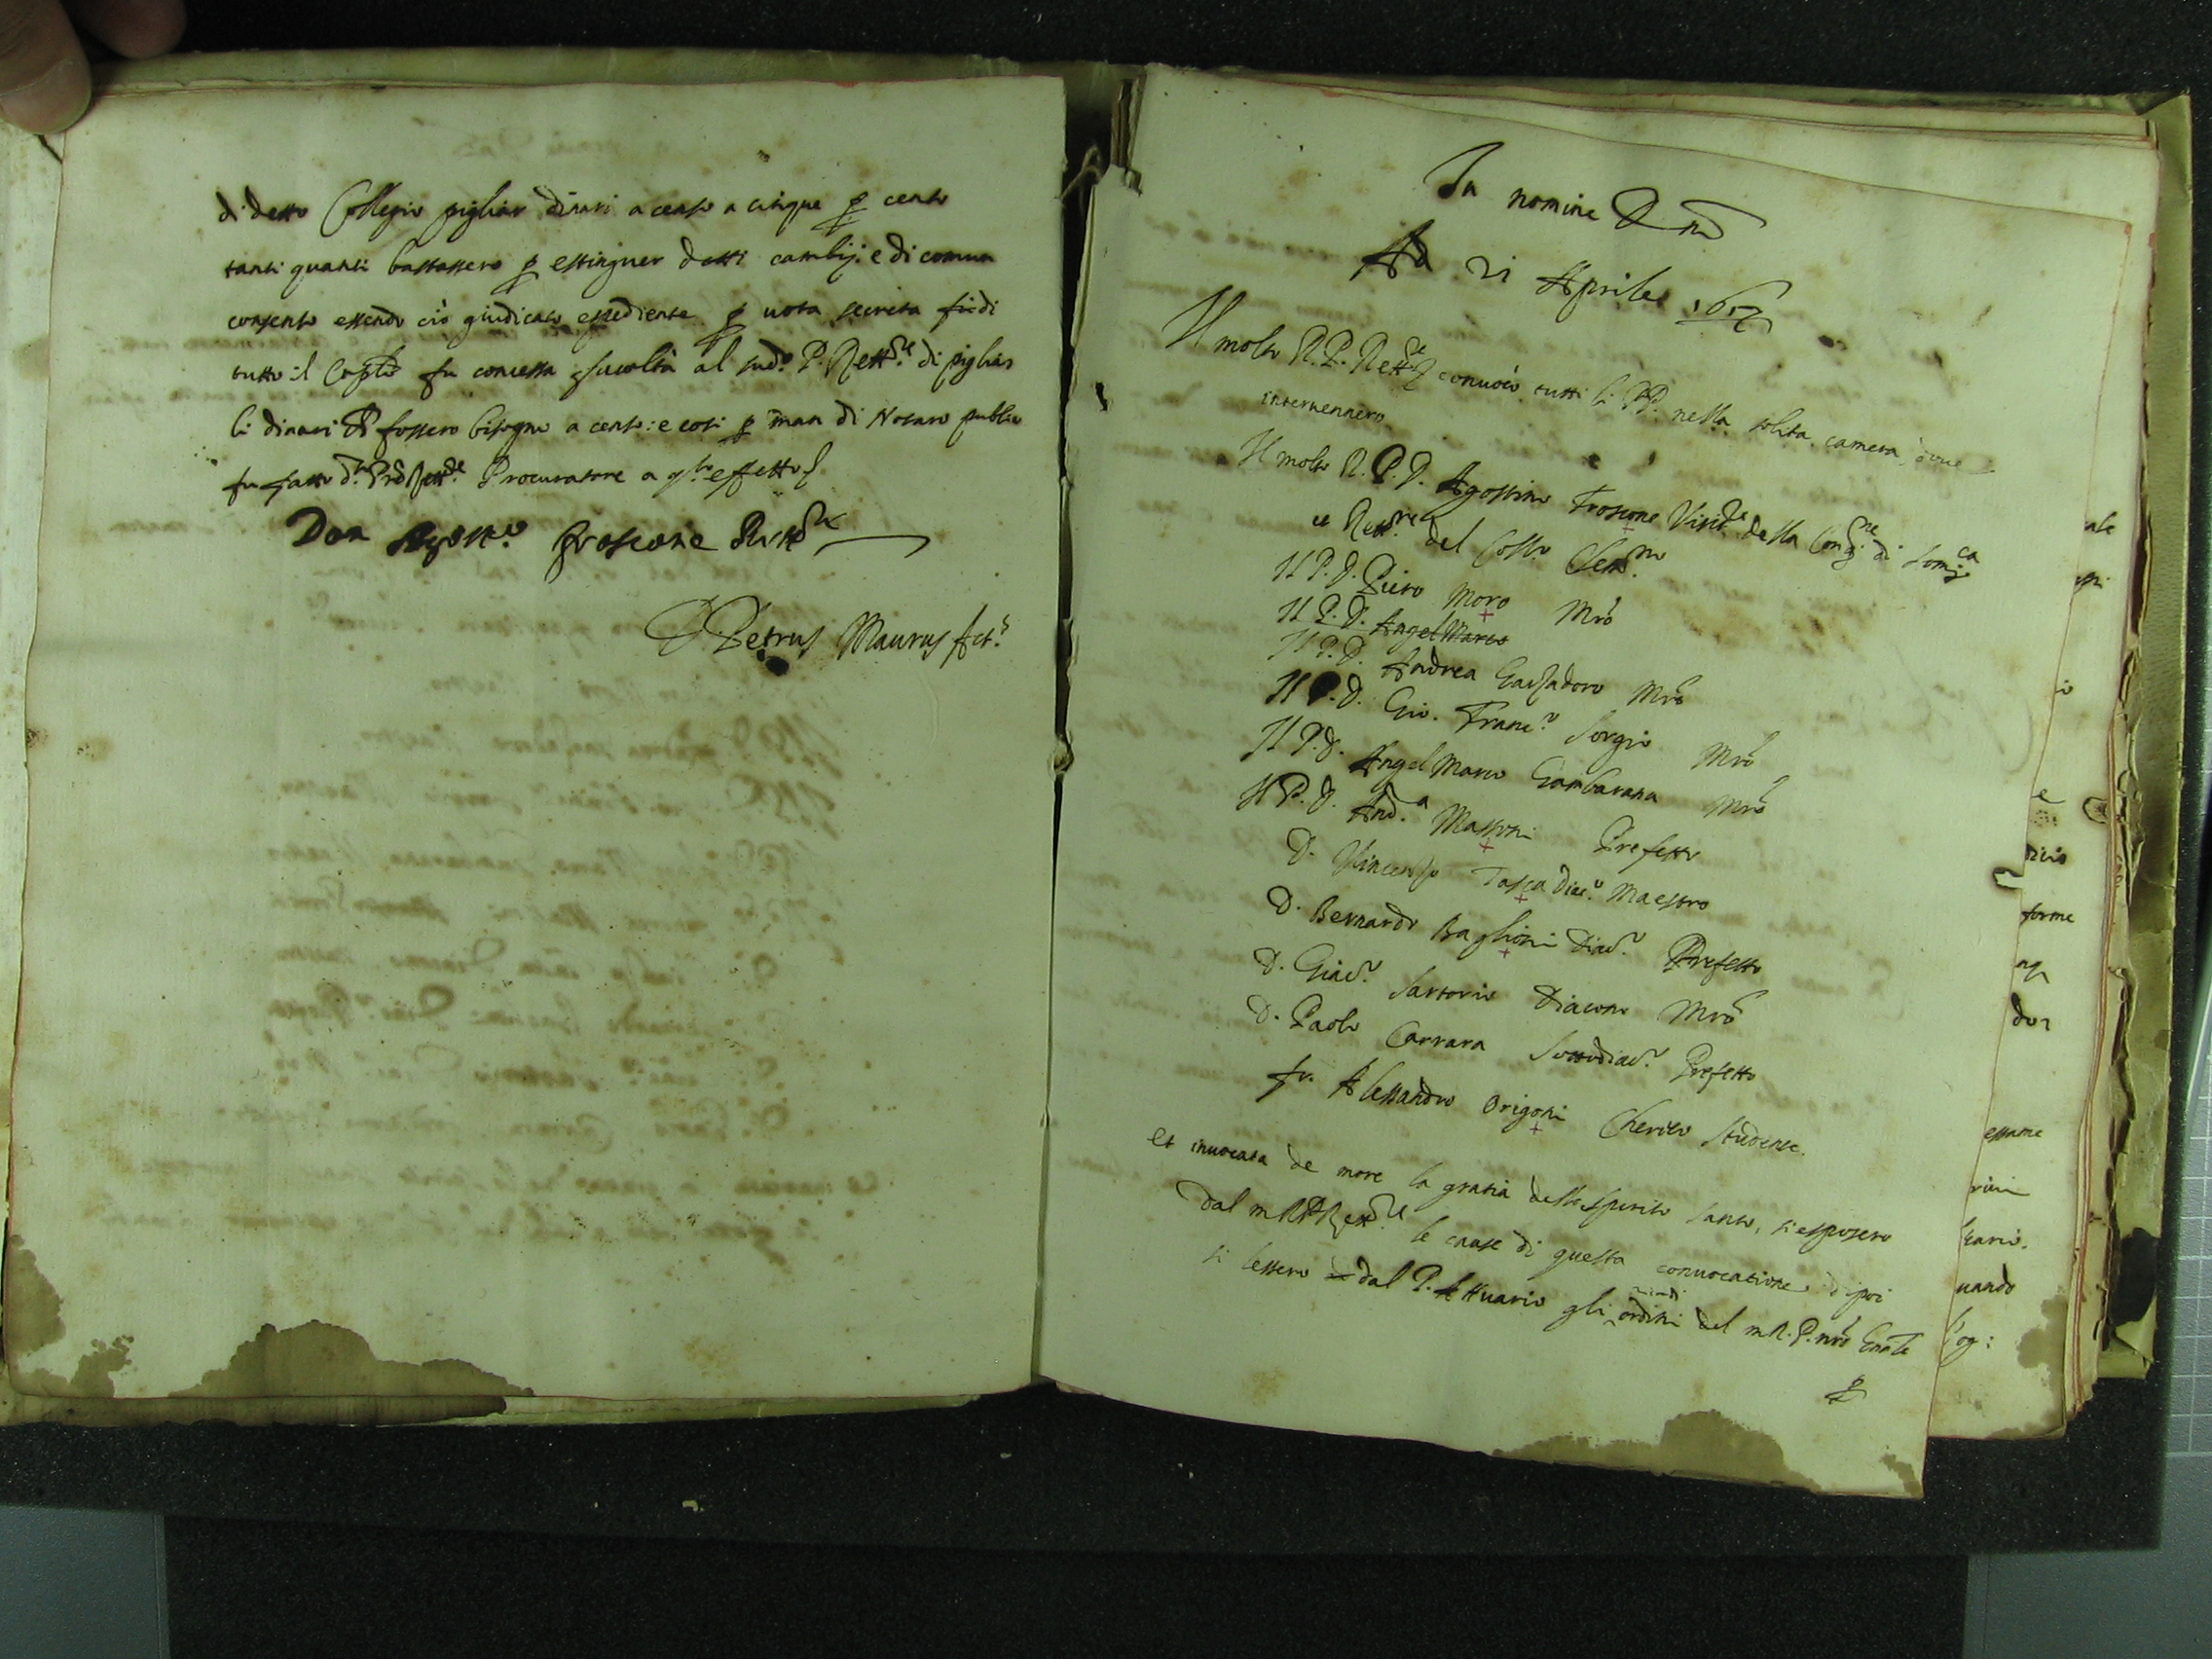 di detto Collegio pigliar dinari a censo a cinque p cento
tanti quanti bastassero p estinguer detti cambij: e di comun
consenso essendo ciò giudicato espediente p uota secreta fu di
tutto il Caplo fu concessa facoltà al sudo. P. Rettre. di pigliar
li dinari che fossero bisogno a censo: e così p man di Notaro publico
fu fatto do. Prê Rettre. Procuratore a qto effetto
Don Agosto. froscone Rettre
D Petrus Maurus Act.s
In nomine Dni
Ad 21 Aprile 1657
Il molto R. P. Rettre conuocò tutti li PP. nella solita camera, oue
interuennero
Il molto R. P. D. Agostino Froscone Visitre della Congne di Somca
et Rettre. del Collo Clemno
Il P. D. Piero Moro Mro
Il P. D. Angel Marco
Il P. D. Andrea Garzadoro Mro
Il P. D. Gio. Franco. Sorgio Mro
Il P. D. Angel Marco Gambarana Mro
Il P. D. Anda. Massoni Prefetto
D. Vincenzo Tasca Diaco. Maestro
D. Bernardo Baglioni Diaco. Prefetto
D. Giaco. Sartorio Diacono Mro
D. Paolo Carrara Sottodiaco. Prefetto
fr. Alessandro Origoni Cherico studente.
et inuocata de more la gratia dello spirito santo, si esposero
dal m. R. P. Rettre le cause di questa conuocatione di poi
si lessero dal P. Attuario gli ordini del m. R. P. nro Gnale